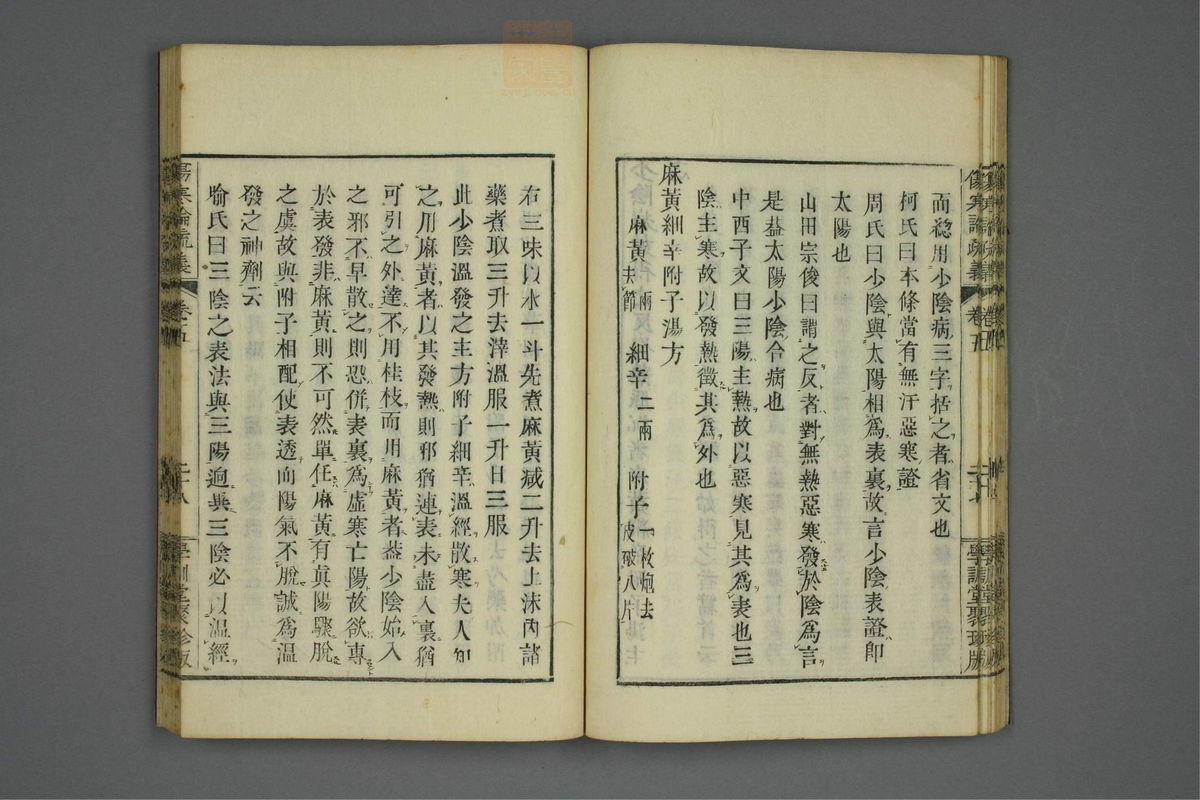 傷寒論疏義 卷五 學訓堂聚珍版
而總用少陰病三字括之者省文也
柯氏曰本條當有無汗惡寒證
周氏曰少陰與太陽相爲表裏故言少陰表證即
太陽也
山田宗俊曰謂之反者對無熱惡寒發於陰爲言
是葢太陽少陰合病也
中西子文曰三陽主熱故以惡寒見其爲表也三
陰主寒故以發熱徵其爲外也
麻黃細辛附子湯方
麻黃二兩去節 細辛二兩 附子一枚炮去皮破八片
右三味以水一斗先煮麻黃減二升去上沫內諸
藥煮取三升去滓溫服一升日三服
此少陰溫發之主方附子細辛溫經散寒夫人知
之用麻黃者以其發熱則邪猶連表未盡入裏猶
可引之外達不用桂枝而用麻黃者葢少陰始入
之邪不早散之則恐併表裏爲虛寒亡陽故欲專
於表發非麻黃則不可然單任麻黃有眞陽驟脫
之虞故與附子相配使表透而陽氣不脫誠爲溫
發之神劑云
喻氏曰三陰之表法與三陽迥異三陰必以溫經
傷寒論疏義 卷五 二十八 學訓堂聚珍版